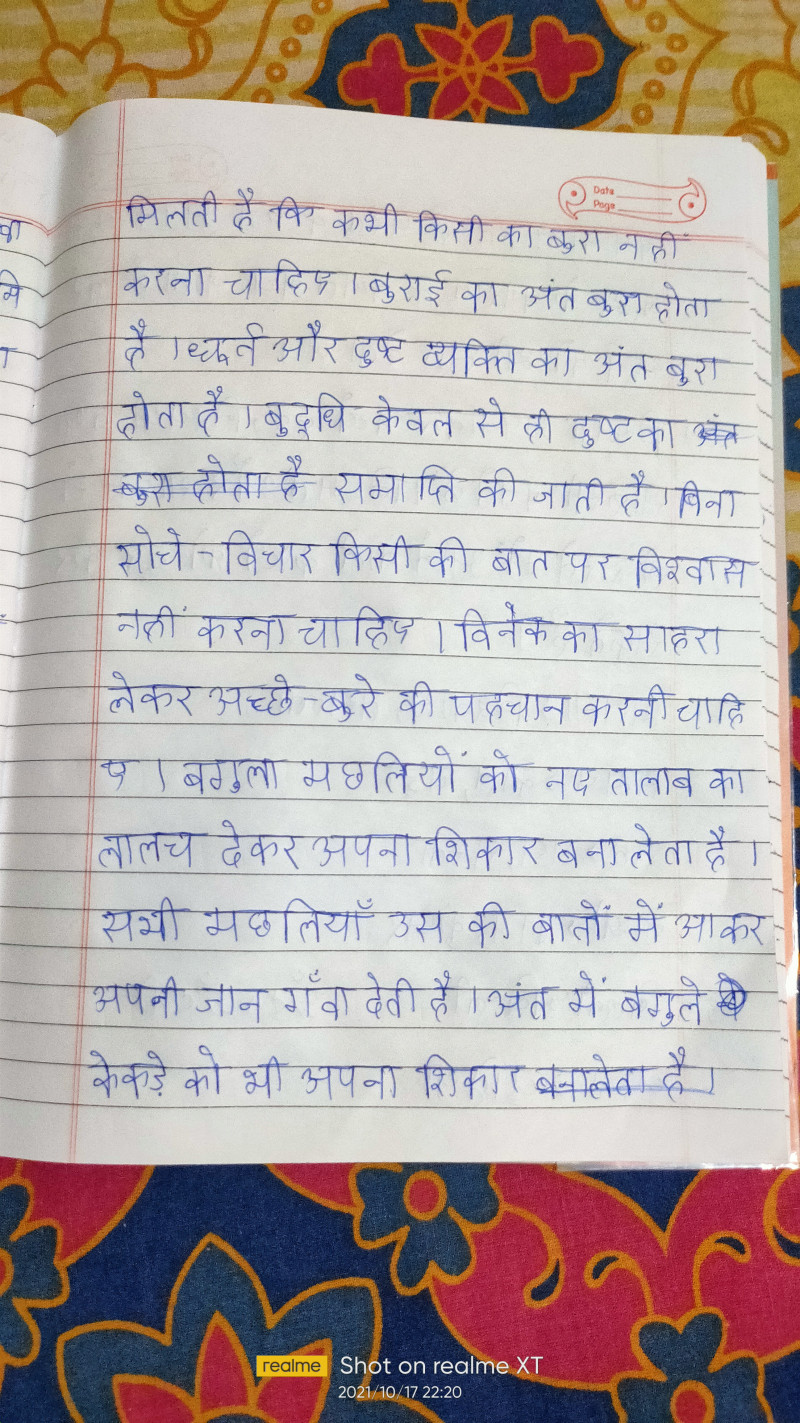 Date
Page
मिलती है कि कभी किसी का बुरा नहीं
करना चाहिए । बुराई का अंत बुरा होता
है । धूर्त और दुष्ट व्यक्ति का अंत बुरा
होता है । बुद्धि केवल से ही दुष्ट का अंत
बुरा होता है समाप्ति की जाती है । बिना
सोचे - विचार किसी की बात पर विश्वास
नहीं करना चाहिए । विवेक का साहरा
लेकर अच्छे - बुरे की पहचान करनी चाहि
ए । बगुला मछलियों को नए तालाब का
लालच देकर अपना शिकार बना लेता है ।
सभी मछलियाँ उस की बातों में आकर
अपनी जान गँवा देती है । अंत में बगुले
केकड़े को भी अपना शिकार बनालेता है ।
realme Shot on realme XT
2021/10/17 22:20